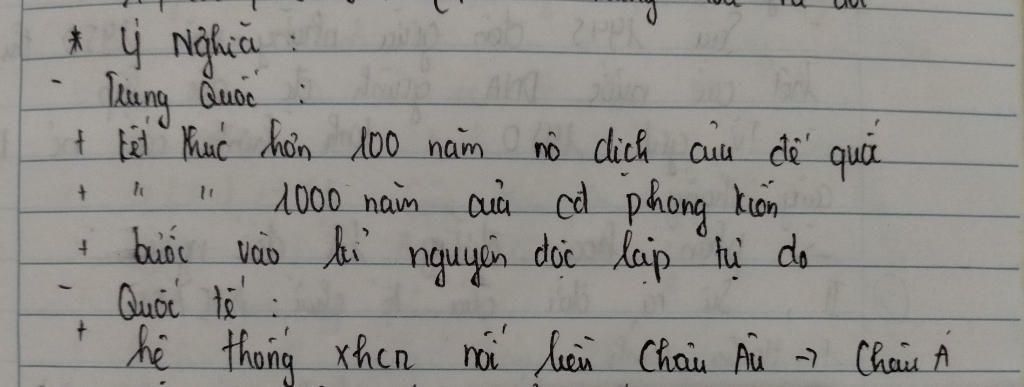 * Ý Nghĩa :
- Trung Quốc :
+ kết thúc hơn 100 năm nô dịch của đế quốc
+ " " 1000 năm của cđ phong kiến
+ bước vào kỉ nguyên độc lập tự do
- Quốc tế :
+ hệ thống xhcn nối liền Châu Âu → Châu Á